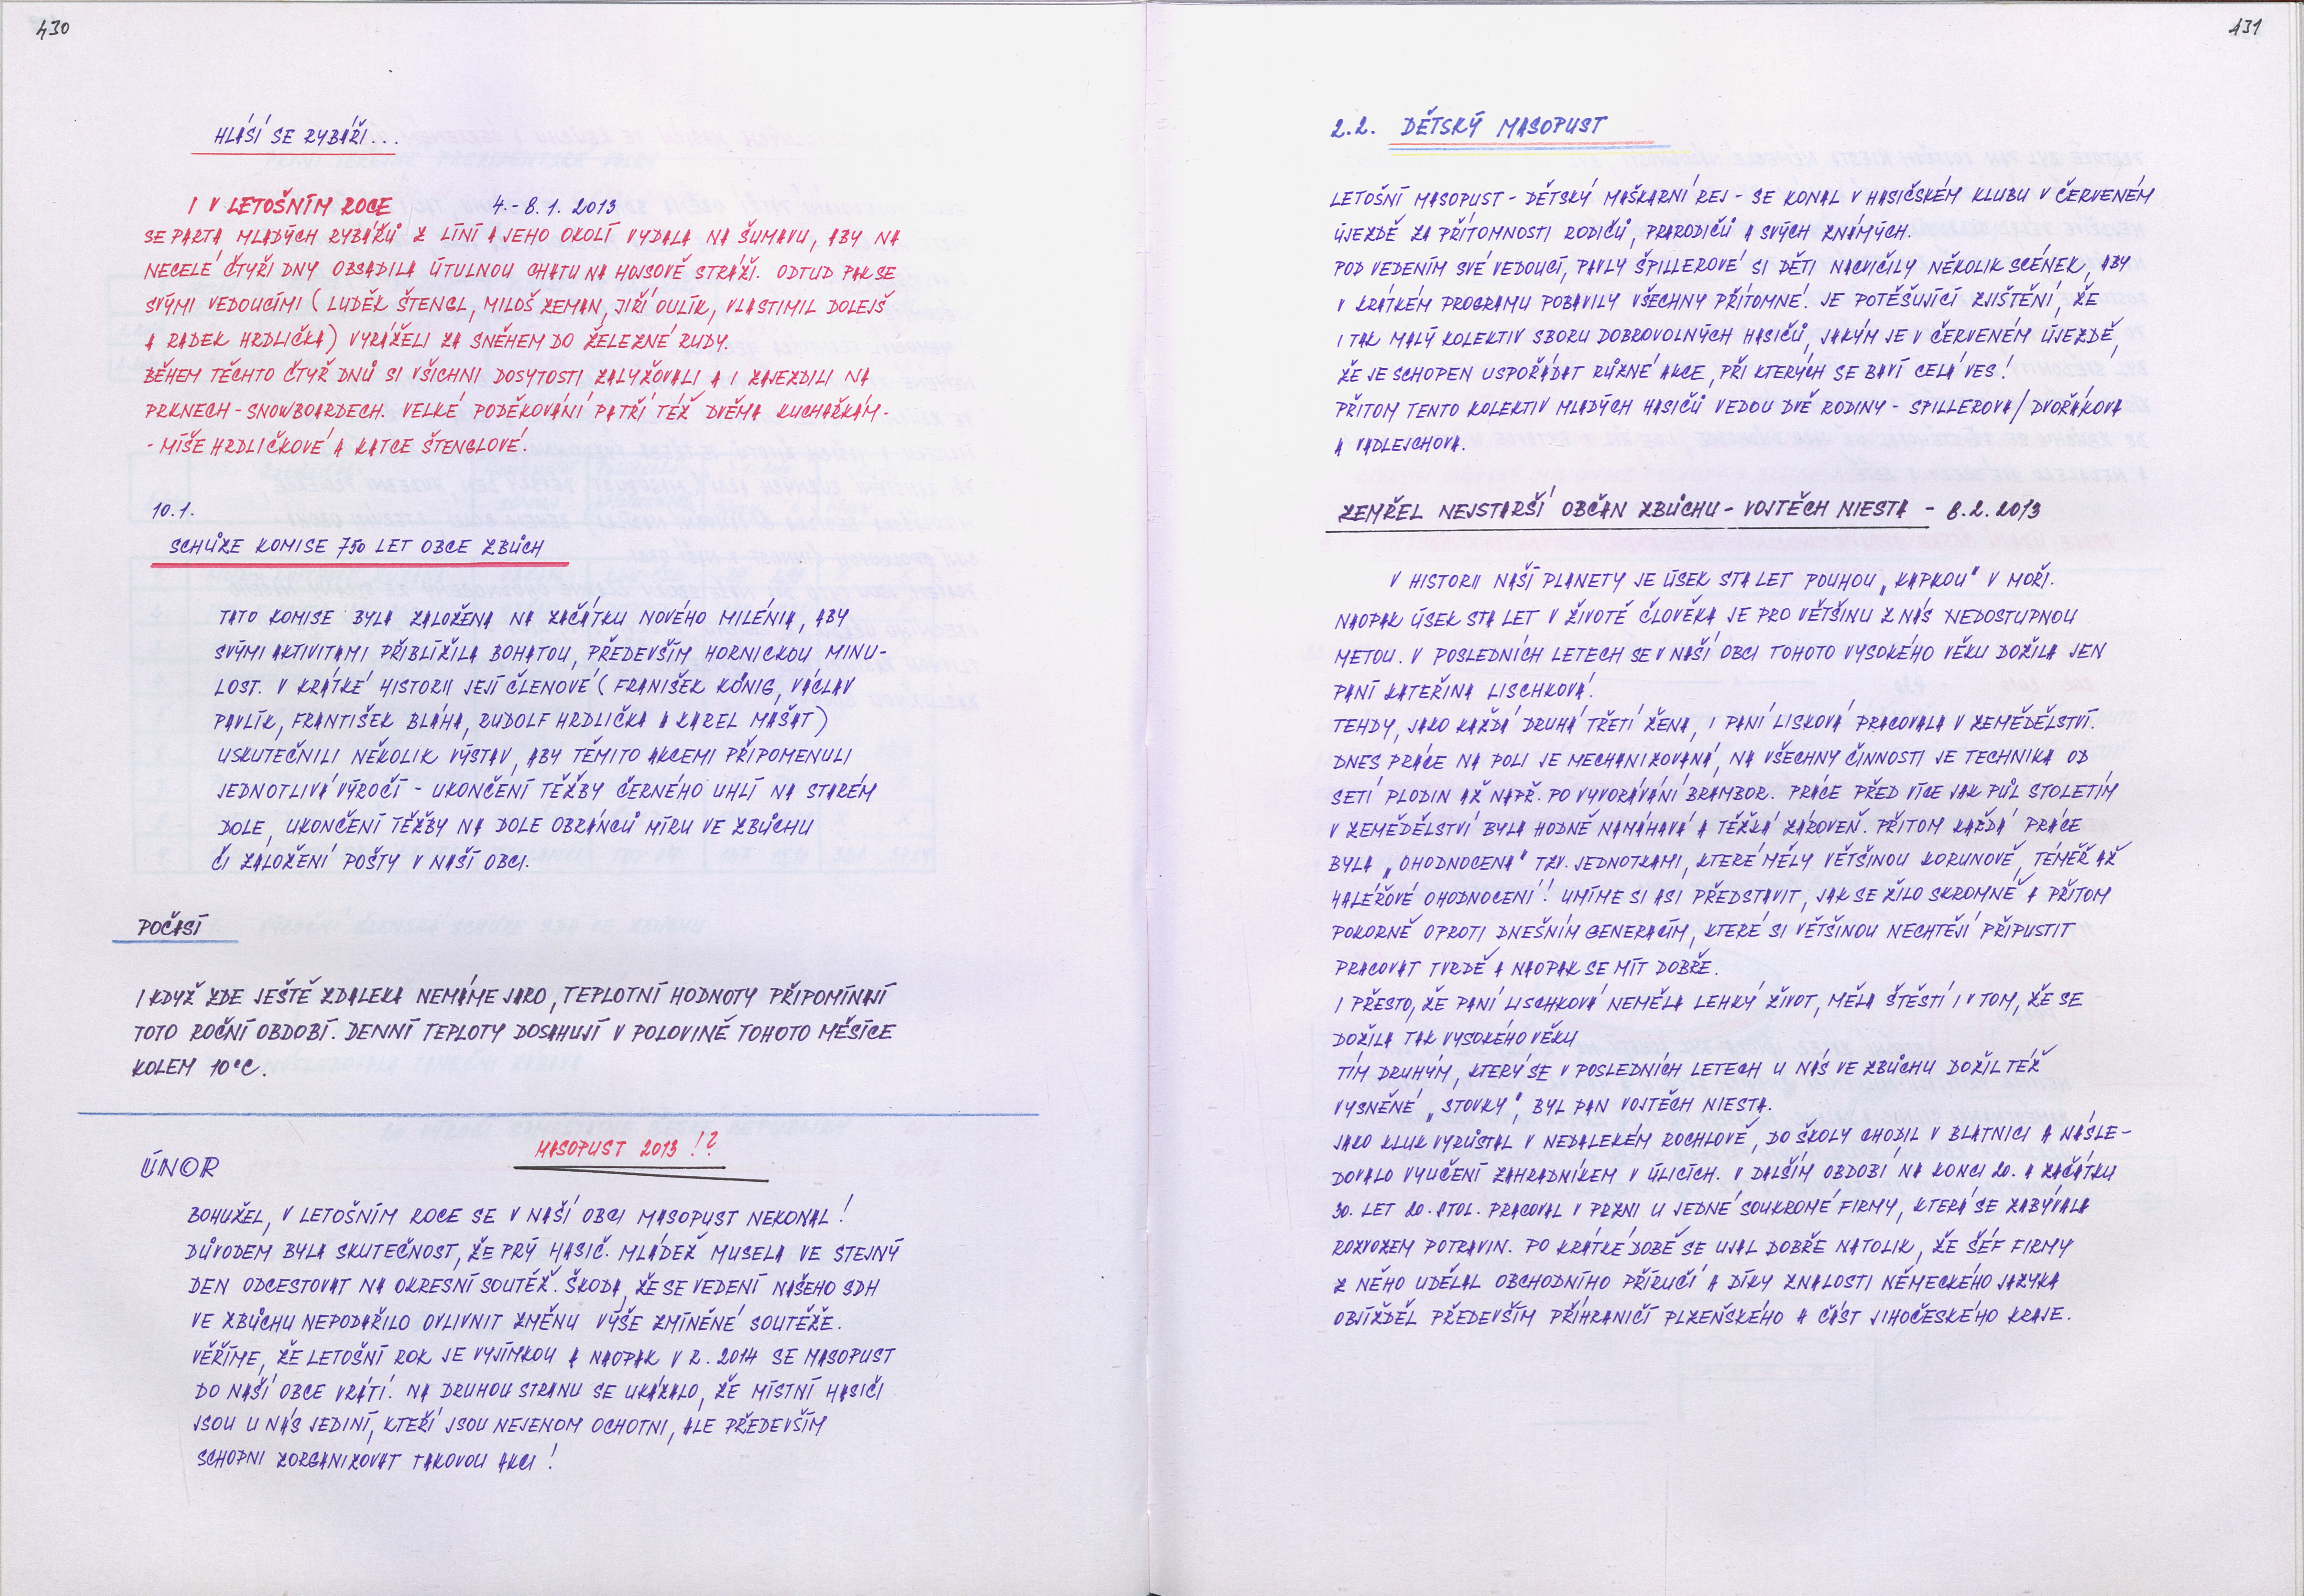 430
HLÁSÍ SE RYBÁŘI...
I V LETOŠNÍM ROCE 4.-8.1. 2013
SE PARTA MLADÝCH RYBÁŘŮ Z LÍNÍ A JEHO OKOLÍ VYDALA NA ŠUMAVU, ABY NA
NECELÉ ČTYŘI DNY OBSADILA ÚTULNOU CHATU NA HOJSOVĚ STRÁŽI. ODTUD PAK SE
SVÝMI VEDOUCÍMI (LUDĚK ŠTENGL, MILOŠ ZEMAN, JIŘÍ OULÍK, VLASTIMIL DOLEJŠ
A RADEK HRDLIČKA) VYRÁŽELI ZA SNĚHEM DO ŽELEZNÉ RUDY.
BĚHEM TĚCHTO ČTYŘ DNŮ SI VŠICHNI DOSYTOSTI ZALYŽOVALI A I ZAJEZDILI NA
PRKNECH - SNOWBOARDECH. VELKÉ PODĚKOVÁNÍ PATŘÍ TÉŽ DVĚMA KUCHAŘKÁM -
- MÍŠE HRDLIČKOVÉ A KATCE ŠTENGLOVÉ.
10.1.
SCHŮZE KOMISE 750 LET OBCE ZBŮCH
TATO KOMISE BYLA ZALOŽENA NA ZAČÁTKU NOVÉHO MILÉNIA, ABY
SVÝMI AKTIVITAMI PŘIBLÍŽILA BOHATOU, PŘEDEVŠÍM HORNICKOU MINU-
LOST. V KRÁTKÉ HISTORII JEJÍ ČLENOVÉ (FRANIŠEK KÖNIG, VÁCLAV
PAVLÍK, FRANTIŠEK BLÁHA, RUDOLF HRDLIČKA A KAREL MAŠAT)
USKUTEČNILI NĚKOLIK VÝSTAV, ABY TĚMITO AKCEMI PŘIPOMENULI
JEDNOTLIVÁ VÝROČÍ - UKONČENÍ TĚŽBY ČERNÉHO UHLÍ NA STARÉM
DOLE, UKONČENÍ TĚŽBY NA DOLE OBRÁNCŮ MÍRU VE ZBŮCHU
ČI ZALOŽENÍ POŠTY V NAŠÍ OBCI.
POČASÍ
I KDYŽ ZDE JEŠTĚ ZDALEKA NEMÁME JARO, TEPLOTNÍ HODNOTY PŘIPOMÍNAJÍ
TOTO ROČNÍ OBDOBÍ. DENNÍ TEPLOTY DOSAHUJÍ V POLOVINĚ TOHOTO MĚSÍCE
KOLEM 10°C.
MASOPUST 2013 !?
ÚNOR
BOHUŽEL, V LETOŠNÍM ROCE SE V NAŠÍ OBCI MASOPUST NEKONAL!
DŮVODEM BYLA SKUTEČNOST, ŽE PRÝ HASIČ. MLÁDEŽ MUSELA VE STEJNÝ
DEN ODCESTOVAT NA OKRESNÍ SOUTĚŽ. ŠKODA, ŽE SE VEDENÍ NAŠEHO SDH
VE ZBŮCHU NEPODAŘILO OVLIVNIT ZMĚNU VÝŠE ZMÍNĚNÉ SOUTĚŽE.
VĚŘÍME, ŽE LETOŠNÍ ROK JE VYJÍMKOU A NAOPAK V R. 2014 SE MASOPUST
DO NAŠÍ OBCE VRÁTÍ. NA DRUHOU STRANU SE UKÁZALO, ŽE MÍSTNÍ HASIČI
JSOU U NÁS JEDINÍ, KTEŘÍ JSOU NEJENOM OCHOTNI, ALE PŘEDEVŠÍM
SCHOPNI ZORGANIZOVAT TAKOVOU AKCI!
431
2.2. DĚTSKÝ MASOPUST
LETOŠNÍ MASOPUST - DĚTSKÝ MAŠKARNÍ REJ - SE KONAL V HASIČSKÉM KLUBU V ČERVENÉM
ÚJEZDĚ ZA PŘÍTOMNOSTI RODIČŮ, PRARODIČŮ A SVÝCH ZNÁMÝCH.
POD VEDENÍM SVÉ VEDOUCÍ, PAVLY ŠPILLEROVÉ SI DĚTI NACVIČILY NĚKOLIK SCÉNEK, ABY
V KRÁTKÉM PROGRAMU POBAVILY VŠECHNY PŘÍTOMNÉ. JE POTĚŠUJÍCÍ ZJIŠTĚNÍ, ŽE
I TAK MALÝ KOLEKTIV SBORU DOBROVOLNÝCH HASIČŮ, JAKÝM JE V ČERVENÉM ÚJEZDĚ,
ŽE JE SCHOPEN USPOŘÁDAT RŮZNÉ AKCE, PŘI KTERÝCH SE BAVÍ CELÁ VES!
PŘITOM TENTO KOLEKTIV MLADÝCH HASIČŮ VEDOU DVĚ RODINY - SPILLEROVA/DVOŘÁKOVA
A VADLEJCHOVA.
ZEMŘEL NEJSTARŠÍ OBČAN ZBŮCHU - VOJTĚCH NIESTA - 8.2.2013
V HISTORII NAŠÍ PLANETY JE ÚSEK STA LET POUHOU „KAPKOU" V MOŘI.
NAOPAK ÚSEK STA LET V ŽIVOTĚ ČLOVĚKA JE PRO VĚTŠINU Z NÁS NEDOSTUPNOU
METOU. V POSLEDNÍCH LETECH SE V NAŠÍ OBCI TOHOTO VYSOKÉHO VĚKU DOŽILA JEN
PANÍ KATEŘINA LISCHKOVÁ.
TEHDY, JAKO KAŽDÁ DRUHÁ TŘETÍ ŽENA, I PANÍ LISKOVÁ PRACOVALA V ZEMĚDĚLSTVÍ.
DNES PRÁCE NA POLI JE MECHANIZOVANÁ, NA VŠECHNY ČINNOSTI JE TECHNIKA OD
SETÍ PLODIN AŽ NAPŘ. PO VYVORÁVÁNÍ BRAMBOR. PRÁCE PŘED VÍCE JAK PŮL STOLETÍM
V ZEMĚDĚLSTVÍ BYLA HODNĚ NAMÁHAVÁ A TĚŽKÁ ZÁROVEŇ. PŘITOM KAŽDÁ PRÁCE
BYLA „OHODNOCENA" TZV. JEDNOTKAMI, KTERÉ MĚLY VĚTŠINOU KORUNOVÉ, TÉMĚŘ AŽ
HALÉŘOVÉ OHODNOCENÍ! UMÍME SI ASI PŘEDSTAVIT, JAK SE ŽILO SKROMNĚ A PŘITOM
POKORNĚ OPROTI DNEŠNÍM GENERACÍM, KTERÉ SI VĚTŠINOU NECHTĚJÍ PŘIPUSTIT
PRACOVAT TVRDĚ A NAOPAK SE MÍT DOBŘE.
I PŘESTO, ŽE PANÍ LISCHKOVÁ NEMĚLA LEHKÝ ŽIVOT, MĚLA ŠTĚSTÍ I V TOM, ŽE SE
DOŽILA TAK VYSOKÉHO VĚKU
TÍM DRUHÝM, KTERÝ SE V POSLEDNÍCH LETECH U NÁS VE ZBŮCHU DOŽIL TÉŽ
VYSNĚNÉ „STOVKY", BYL PAN VOJTĚCH NIESTA.
JAKO KLUK VYRŮSTAL V NEDALEKÉM ROCHLOVĚ, DO ŠKOLY CHODIL V BLATNICI A NÁSLE-
DOVALO VYUČENÍ ZAHRADNÍKEM V ÚLICÍCH. V DALŠÍM OBDOBÍ NA KONCI 20. A ZAČÁTKU
30. LET 20. STOL. PRACOVAL V PLZNI U JEDNÉ SOUKROMÉ FIRMY, KTERÁ SE ZABÝVALA
ROZVOZEM POTRAVIN. PO KRÁTKÉ DOBĚ SE UJAL DOBŘE NATOLIK, ŽE ŠÉF FIRMY
Z NĚHO UDĚLAL OBCHODNÍHO PŘÍRUČÍ A DÍKY ZNALOSTI NĚMECKÉHO JAZYKA
OBJÍŽDĚL PŘEDEVŠÍM PŘÍHRANIČÍ PLZEŇSKÉHO A ČÁST JIHOČESKÉHO KRAJE.